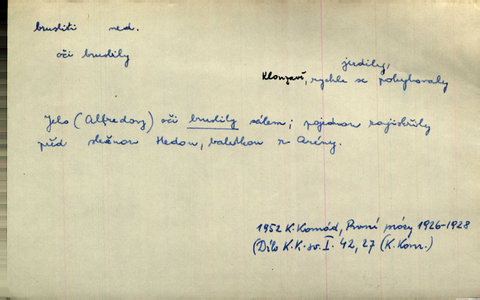 brusliti ned.
oči bruslily
jezdily,
klouzavě, rychle se pohybovaly
Jeho (Alfredovy) oči bruslily sálem; pojednou zajiskřily
před slečnou Hedou, baletkou z Arény.
1952 K. Konrád, První prózy 1926-1928
(Dílo K.K. sv. I. 42, 27 (K. Konr.)